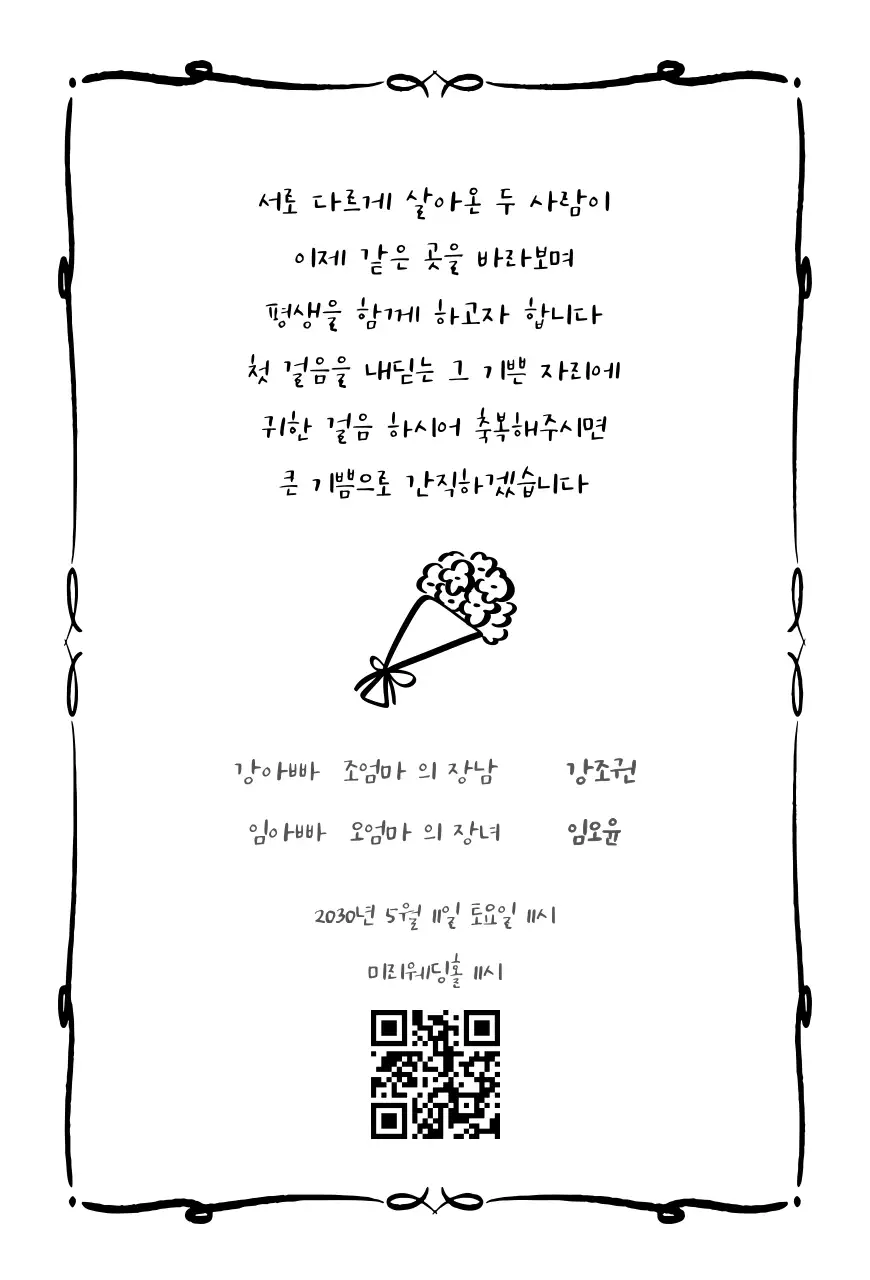 서로 다르게 살아온 두 사람이
이제 같은 곳을 바라보며
평생을 함께 하고자 합니다
첫 걸음을 내딛는 그 기쁜 자리에
귀한 걸음 하시어 축복해주시면
큰 기쁨으로 간직하겠습니다
강아빠 조엄마 의 장남 강조권
임아빠 오엄마 의 장녀 임오윤
2030년 5월 11일 토요일 11시
미리웨딩홀 11시